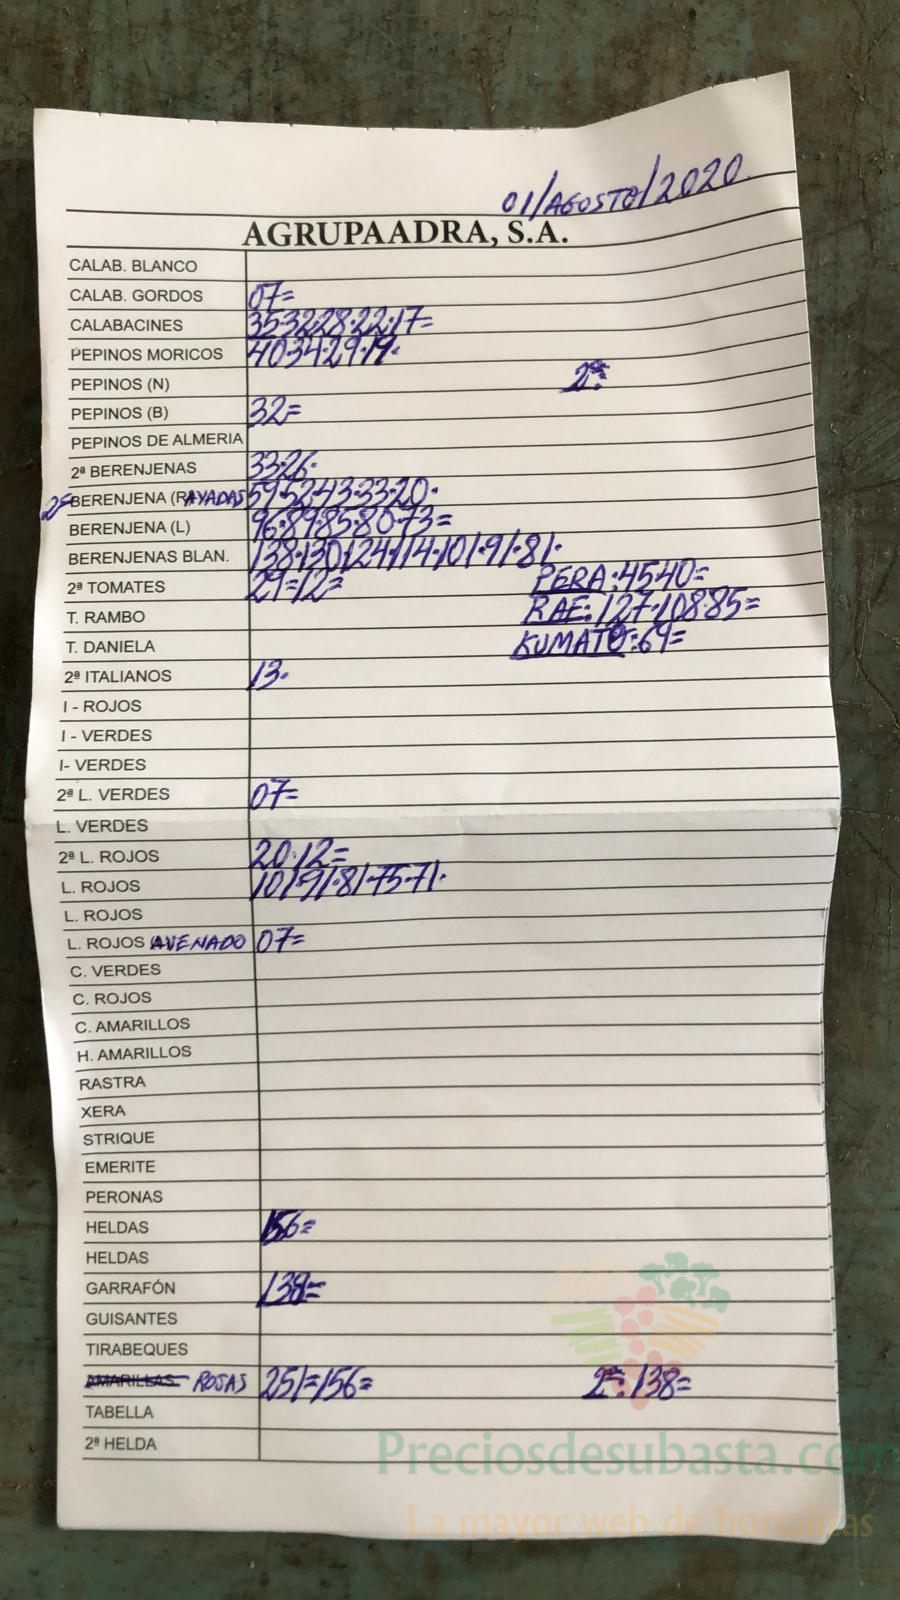 01/AGOSTO/2020
AGRUPAADRA, S.A.
CALAB. BLANCO
CALAB. GORDOS 07=
CALABACINES 35·32·28·22·17=
PEPINOS MORICOS 40·34·29·19·
PEPINOS (N) 2ª:
PEPINOS (B) 32=
PEPINOS DE ALMERIA
2ª BERENJENAS 33·26·
2ª BERENJENA (RAYADAS 59·52·43·33·20·
BERENJENA (L) 96·89·85·80·73=
BERENJENAS BLAN. 138·130·124·114·101·91·81·
2ª TOMATES 29=12= PERA:45·40=
T. RAMBO RAF:127·108·85=
T. DANIELA KUMATO:69=
2ª ITALIANOS 13·
I - ROJOS
I - VERDES
I- VERDES
2ª L. VERDES 07=
L. VERDES
2ª L. ROJOS 20·12=
L. ROJOS 101·91·81·75·71·
L. ROJOS
L. ROJOS AVENADO 07=
C. VERDES
C. ROJOS
C. AMARILLOS
H. AMARILLOS
RASTRA
XERA
STRIQUE
EMERITE
PERONAS
HELDAS 156=
HELDAS
GARRAFÓN 138=
GUISANTES
TIRABEQUES
AMARILLAS ROJAS 251=156= 2ª:138=
TABELLA
2ª HELDA
Preciosdesubasta.com
La mayor web de hortalizas